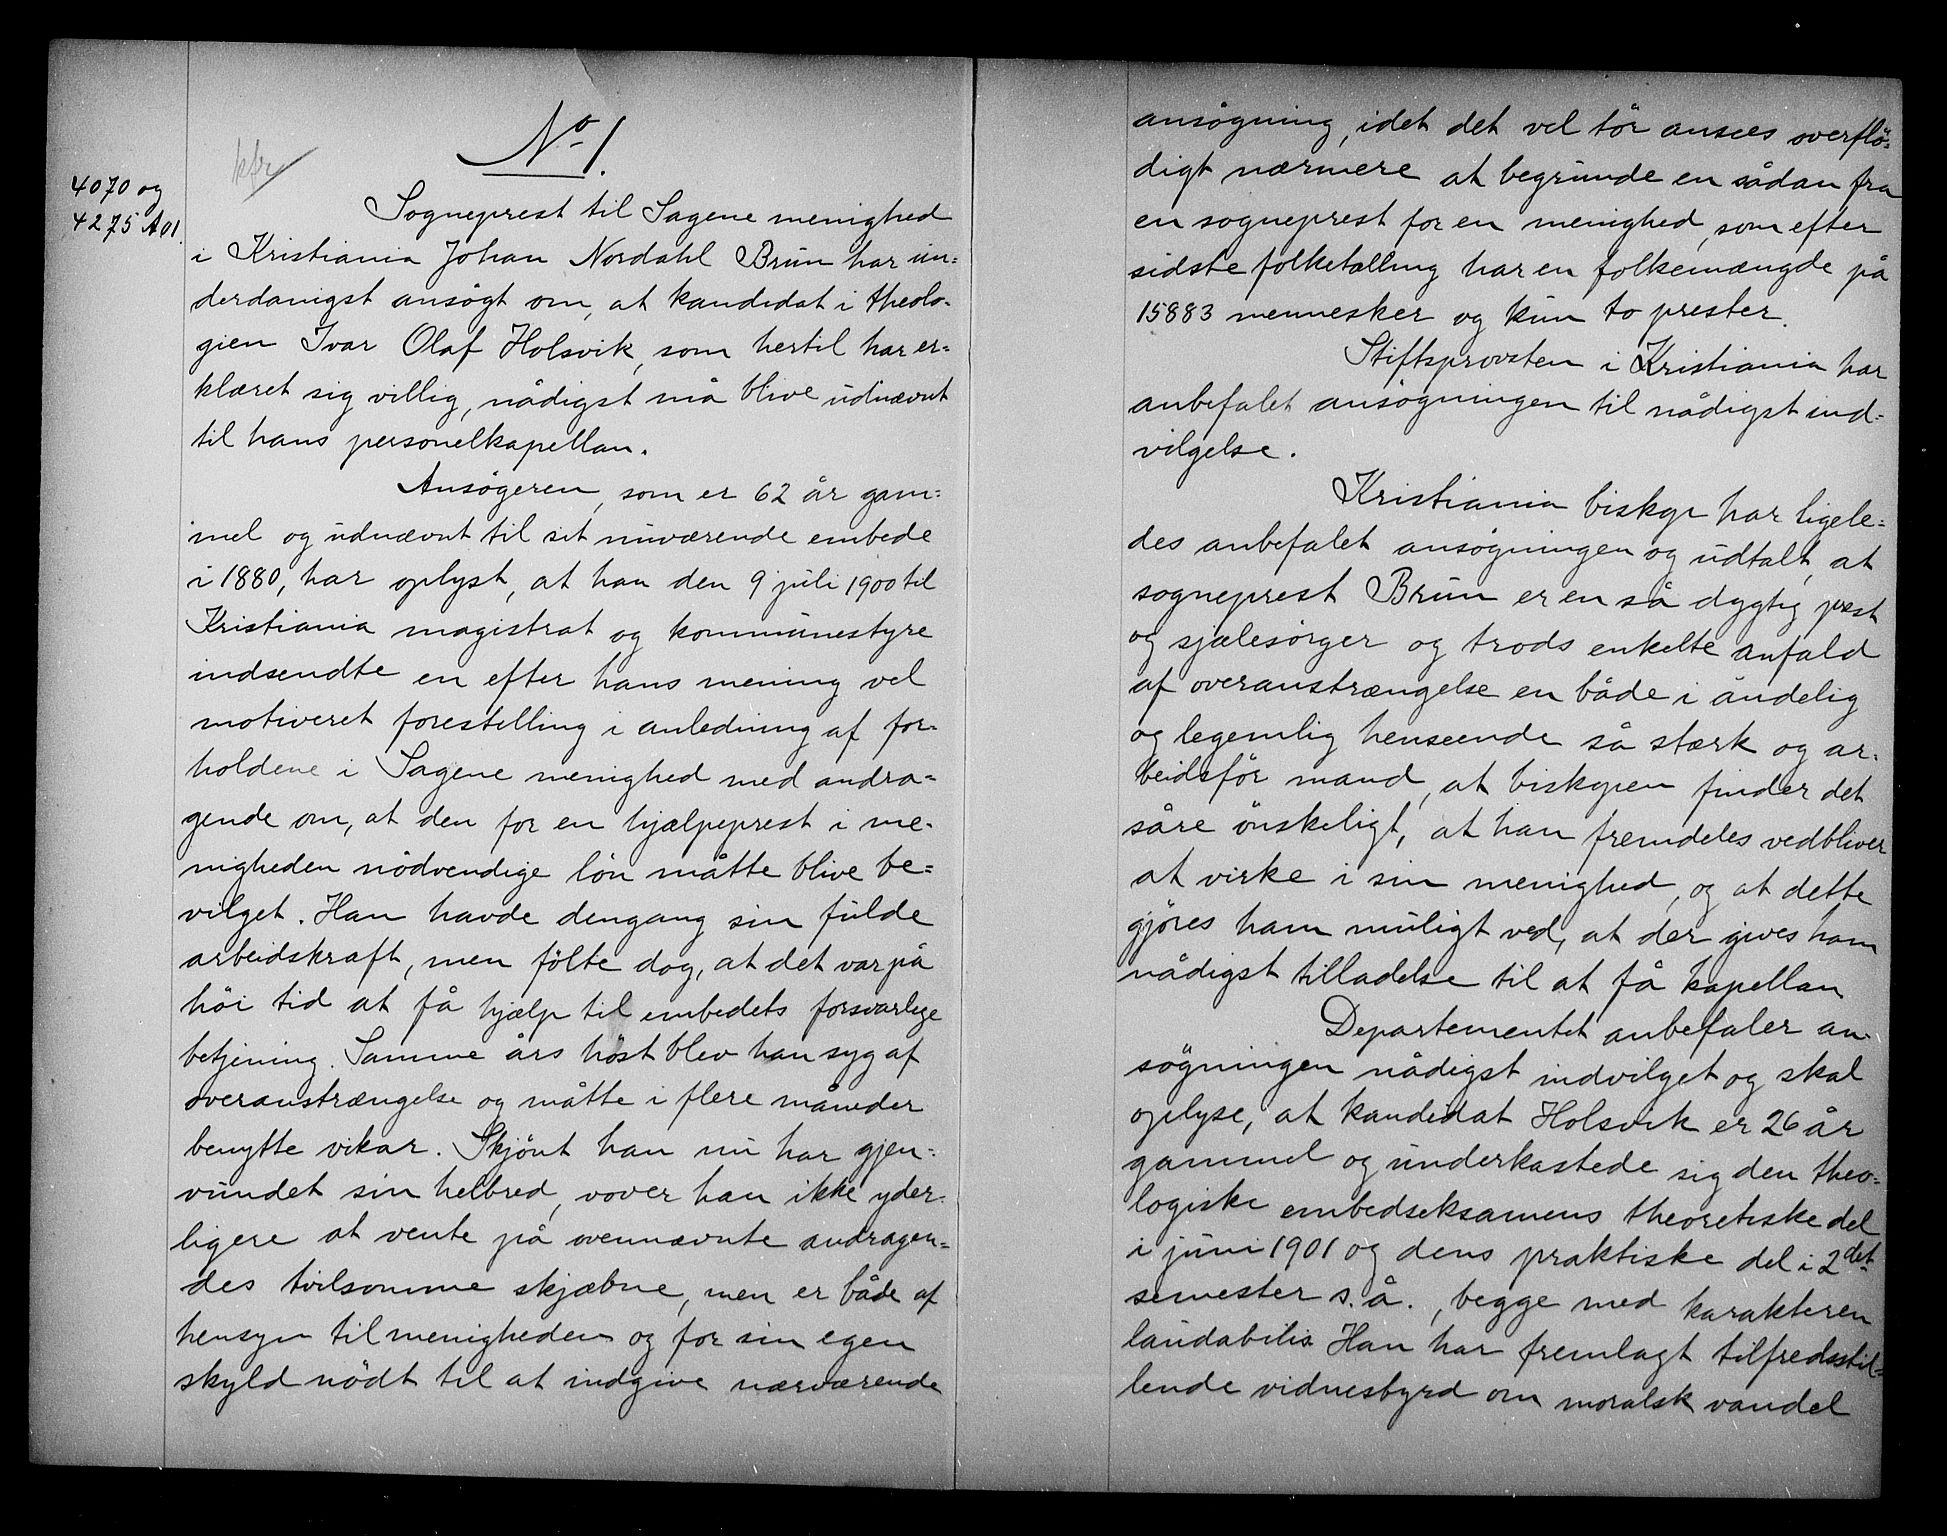 No 1.
4070 og
4275 A 01.
Sogneprest til Sagene menighed
i Kristiania Johan Nordahl Brun har un=
derdanigst ansøgt om, at kandidat i theolo-
gien Ivar Olaf Holsvik, som hertil har er=
klæret sig villig, nådigst må blive udnævnt
til hans personelkapellan.
Ansøgeren, som er 62 år gam=
mel og udnævnt til sit nuværende embede
i 1880, har oplyst, at han den 9 juli 1900 til
Kristiania magistrat og kommunestyre
indsendte en efter hans mening vel
motiveret forestilling i anledning af for-
holdene i Sagene menighed med andra-
gende om, at den for en hjælpeprest i me-
nigheden nödvendige lön måtte blive be=
vilget. Han havde dengang sin fulde
arbeidskraft, men fölte dog, at det var på
höi tid at få hjælp til embedets forsvarlige
betjening. Samme års höst blev han syg af
overanstrængelse og måtte i flere måneder
benytte vikar. Skjönt han nu har gjen-
vundet sin helbred, vover han ikke yder-
ligere at vente på ovennævnte andragen=
des tvilsomme skjæbne, men er både af
hensyn til menigheden og for sin egen
skyld nödt til at indgive nærværende
ansögning, idet det vel tör ansees overflö-
digt nærmere at begrunde en sådan fra
en sogneprest for en menighed, som efter
sidste folketælling har en folkemængde på
15883 mennesker og kun to prester.
Stiftsprovsten i Kristiania har
anbefalet ansögningen til nådigst ind=
vilgelse.
Kristiania biskop har ligele=
des anbefalet ansögningen og udtalt, at
sogneprest Brun er en så dygtig prest
og sjælesörger og trods enkelte anfald
af overanstrængelse en både i åndelig
og legemlig henseende så stærk og ar-
beidsför mand, at biskopen finder det
såre önskeligt, at han fremdeles vedbliver
at virke i sin menighed, og at dette
gjöres ham muligt ved, at der gives ham
nådigst tilladelse til at få kapellan
Departementet anbefaler an-
sögningen nådigst indvilget og skal
oplyse, at kandidat Holsvik er 26 år
gammel og underkastede sig den theo-
logiske embedseksamens theoretiske del
i juni 1901 og dens praktiske del i 2det
semester s. å., begge med karakteren
laudabilis. Han har fremlagt tilfredsstil-
lende vidnesbyrd om moralsk vandel